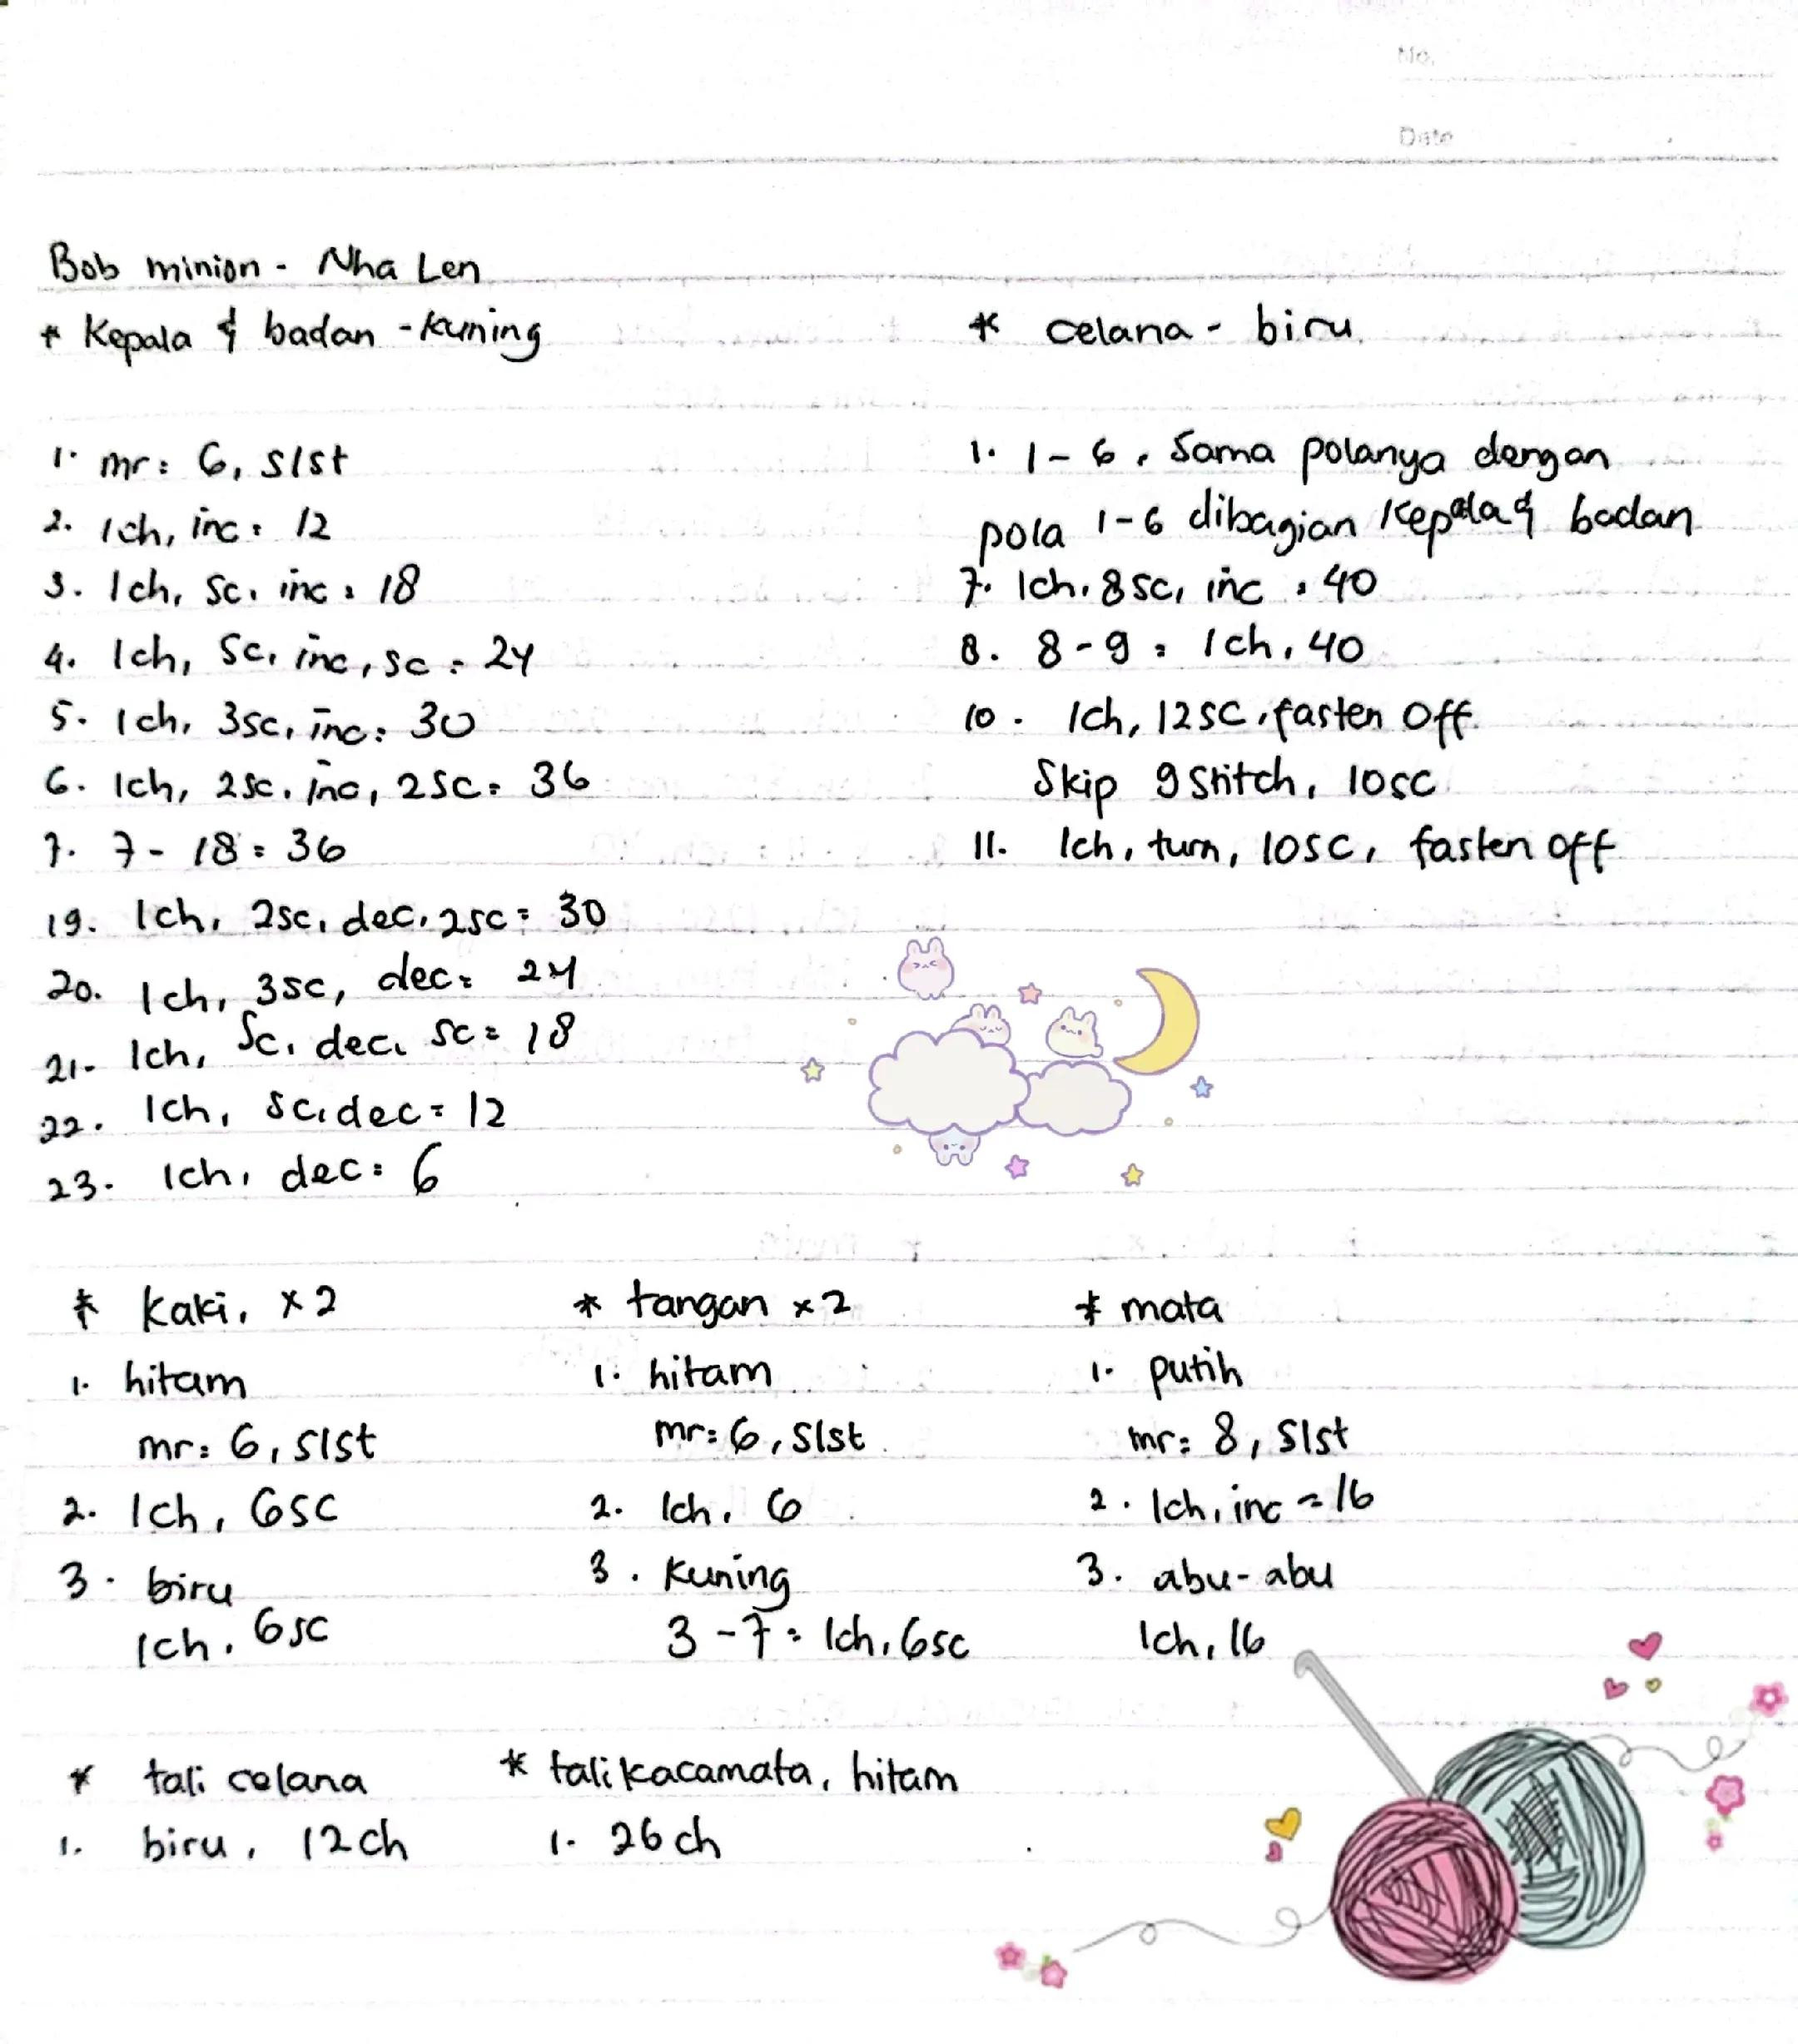 No.
Date
Bob minion - Nha Len
* Kepala & badan - kuning
1. mr: 6, slst
2. 1ch, inc: 12
3. 1ch, sc, inc: 18
4. 1ch, sc, inc, sc: 24
5. 1ch, 3sc, inc: 30
6. 1ch, 2sc, inc, 2sc: 36
7. 7 - 18: 36
19. 1ch, 2sc, dec, 2sc: 30
20. 1ch, 3sc, dec: 24
21- 1ch, sc, dec, sc = 18
22. 1ch, sc, dec = 12
23. 1ch, dec: 6
* celana - biru
1. 1-6, Sama polanya dengan
pola 1-6 dibagian Kepala & badan
7. 1ch, 8sc, inc : 40
8. 8-9 : 1ch, 40
10. 1ch, 12sc, fasten off
Skip 9 stitch, 10sc
11. 1ch, turn, 10sc, fasten off
* Kaki, x2
1. hitam
mr: 6, slst
2. 1ch, 6sc
3. biru
1ch, 6sc
* tangan x2
1. hitam
mr: 6, slst
2. 1ch, 6
3. Kuning
3-7: 1ch, 6sc
* mata
1. putih
mr: 8, slst
2. 1ch, inc = 16
3. abu-abu
1ch, 16
* tali celana
1. biru, 12ch
* tali kacamata, hitam
1. 26 ch